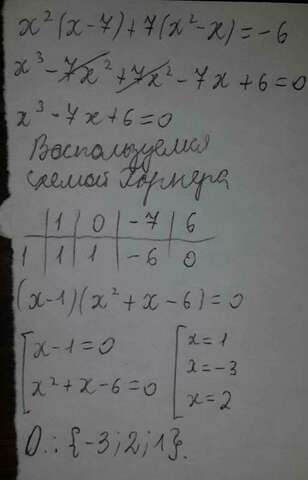 x²(x-7)+7(x²-x)=-6
x³-7x²+7x²-7x+6=0
x³-7x+6=0
Воспользуемся
схемой Горнера
| 1 | 0 | -7 | 6
1 | 1 | 1 | -6 | 0
(x-1)(x²+x-6)=0
[x-1=0 [x=1
x²+x-6=0 x=-3
x=2
О.: {-3;2;1}.